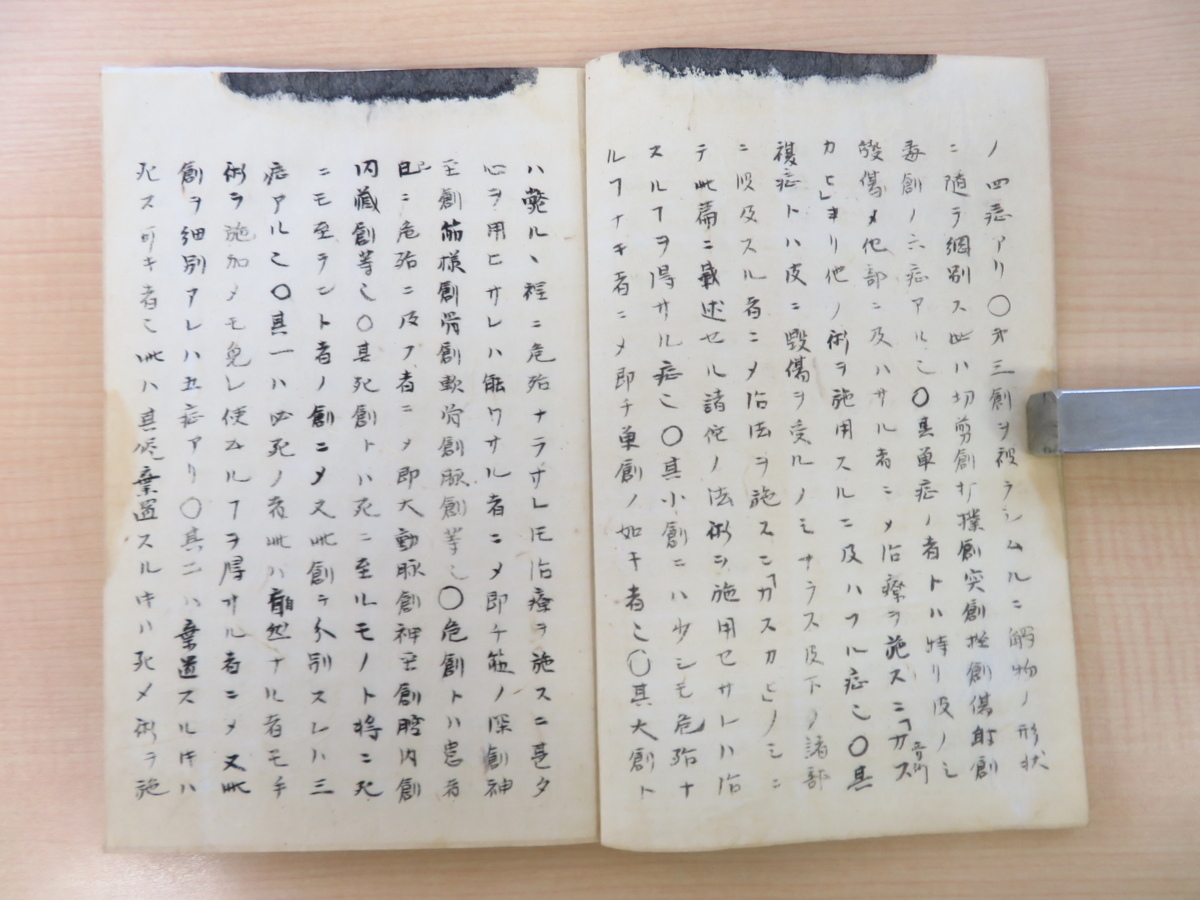 ノ四症アリ〇第三創ヲ被ラシムルニ觸物ノ形状
ニ随テ細別ス此ハ切剪創打撲創突創挫創傷射創
毒創ノ六症アル也〇其単症ノ者トハ特リ皮ノミ
毀傷メ他部ニ及ハサル者ニメ治療ヲ施スニ「カス
カヒ」キリ他ノ術ヲ施用スルニ及ハフル症也〇其
複症トハ皮ニ毀傷ヲ受ルノミナラス皮下ノ諸部
ニ及スル者ニメ治法ヲ施スニ「カスカヒ」ノミニ
テ此篇ニ載述セル諸佗ノ法術ヲ施用セサレハ治
スルヿヲ得サル症也〇其小創ニハ少シモ危殆ナ
ルヿナキ者ニメ即チ単創ノ如キ者也〇其大創ト
ハ斃ルヽ程ニ危殆ナラザレ𪜈治療ヲ施スニ甚タ
心ヲ用ヒサレハ能ワサル者ニメ即チ筋ノ深創神
圣創筋様創骨創軟骨創脈創等也〇危創トハ患者
已ニ危殆ニ及フ者ニメ即大動脈創神圣創腔内創
内臓創等也〇其死創トハ死ニ至ルモノト将ニ死
ニモ至ラント者ノ創ニメ又此創ヲ分別スレハ三
症アル也〇其一ハ必死ノ者此ハ自然ナル者モ手
術ヲ施加メモ免レ使ムルヿヲ得サル者ニメ又此
創ヲ細別アレハ五症アリ〇其二ハ棄置スル𪜈ハ
死ス可キ者也此ハ其侭棄置スル𪜈ハ死メ術ヲ施